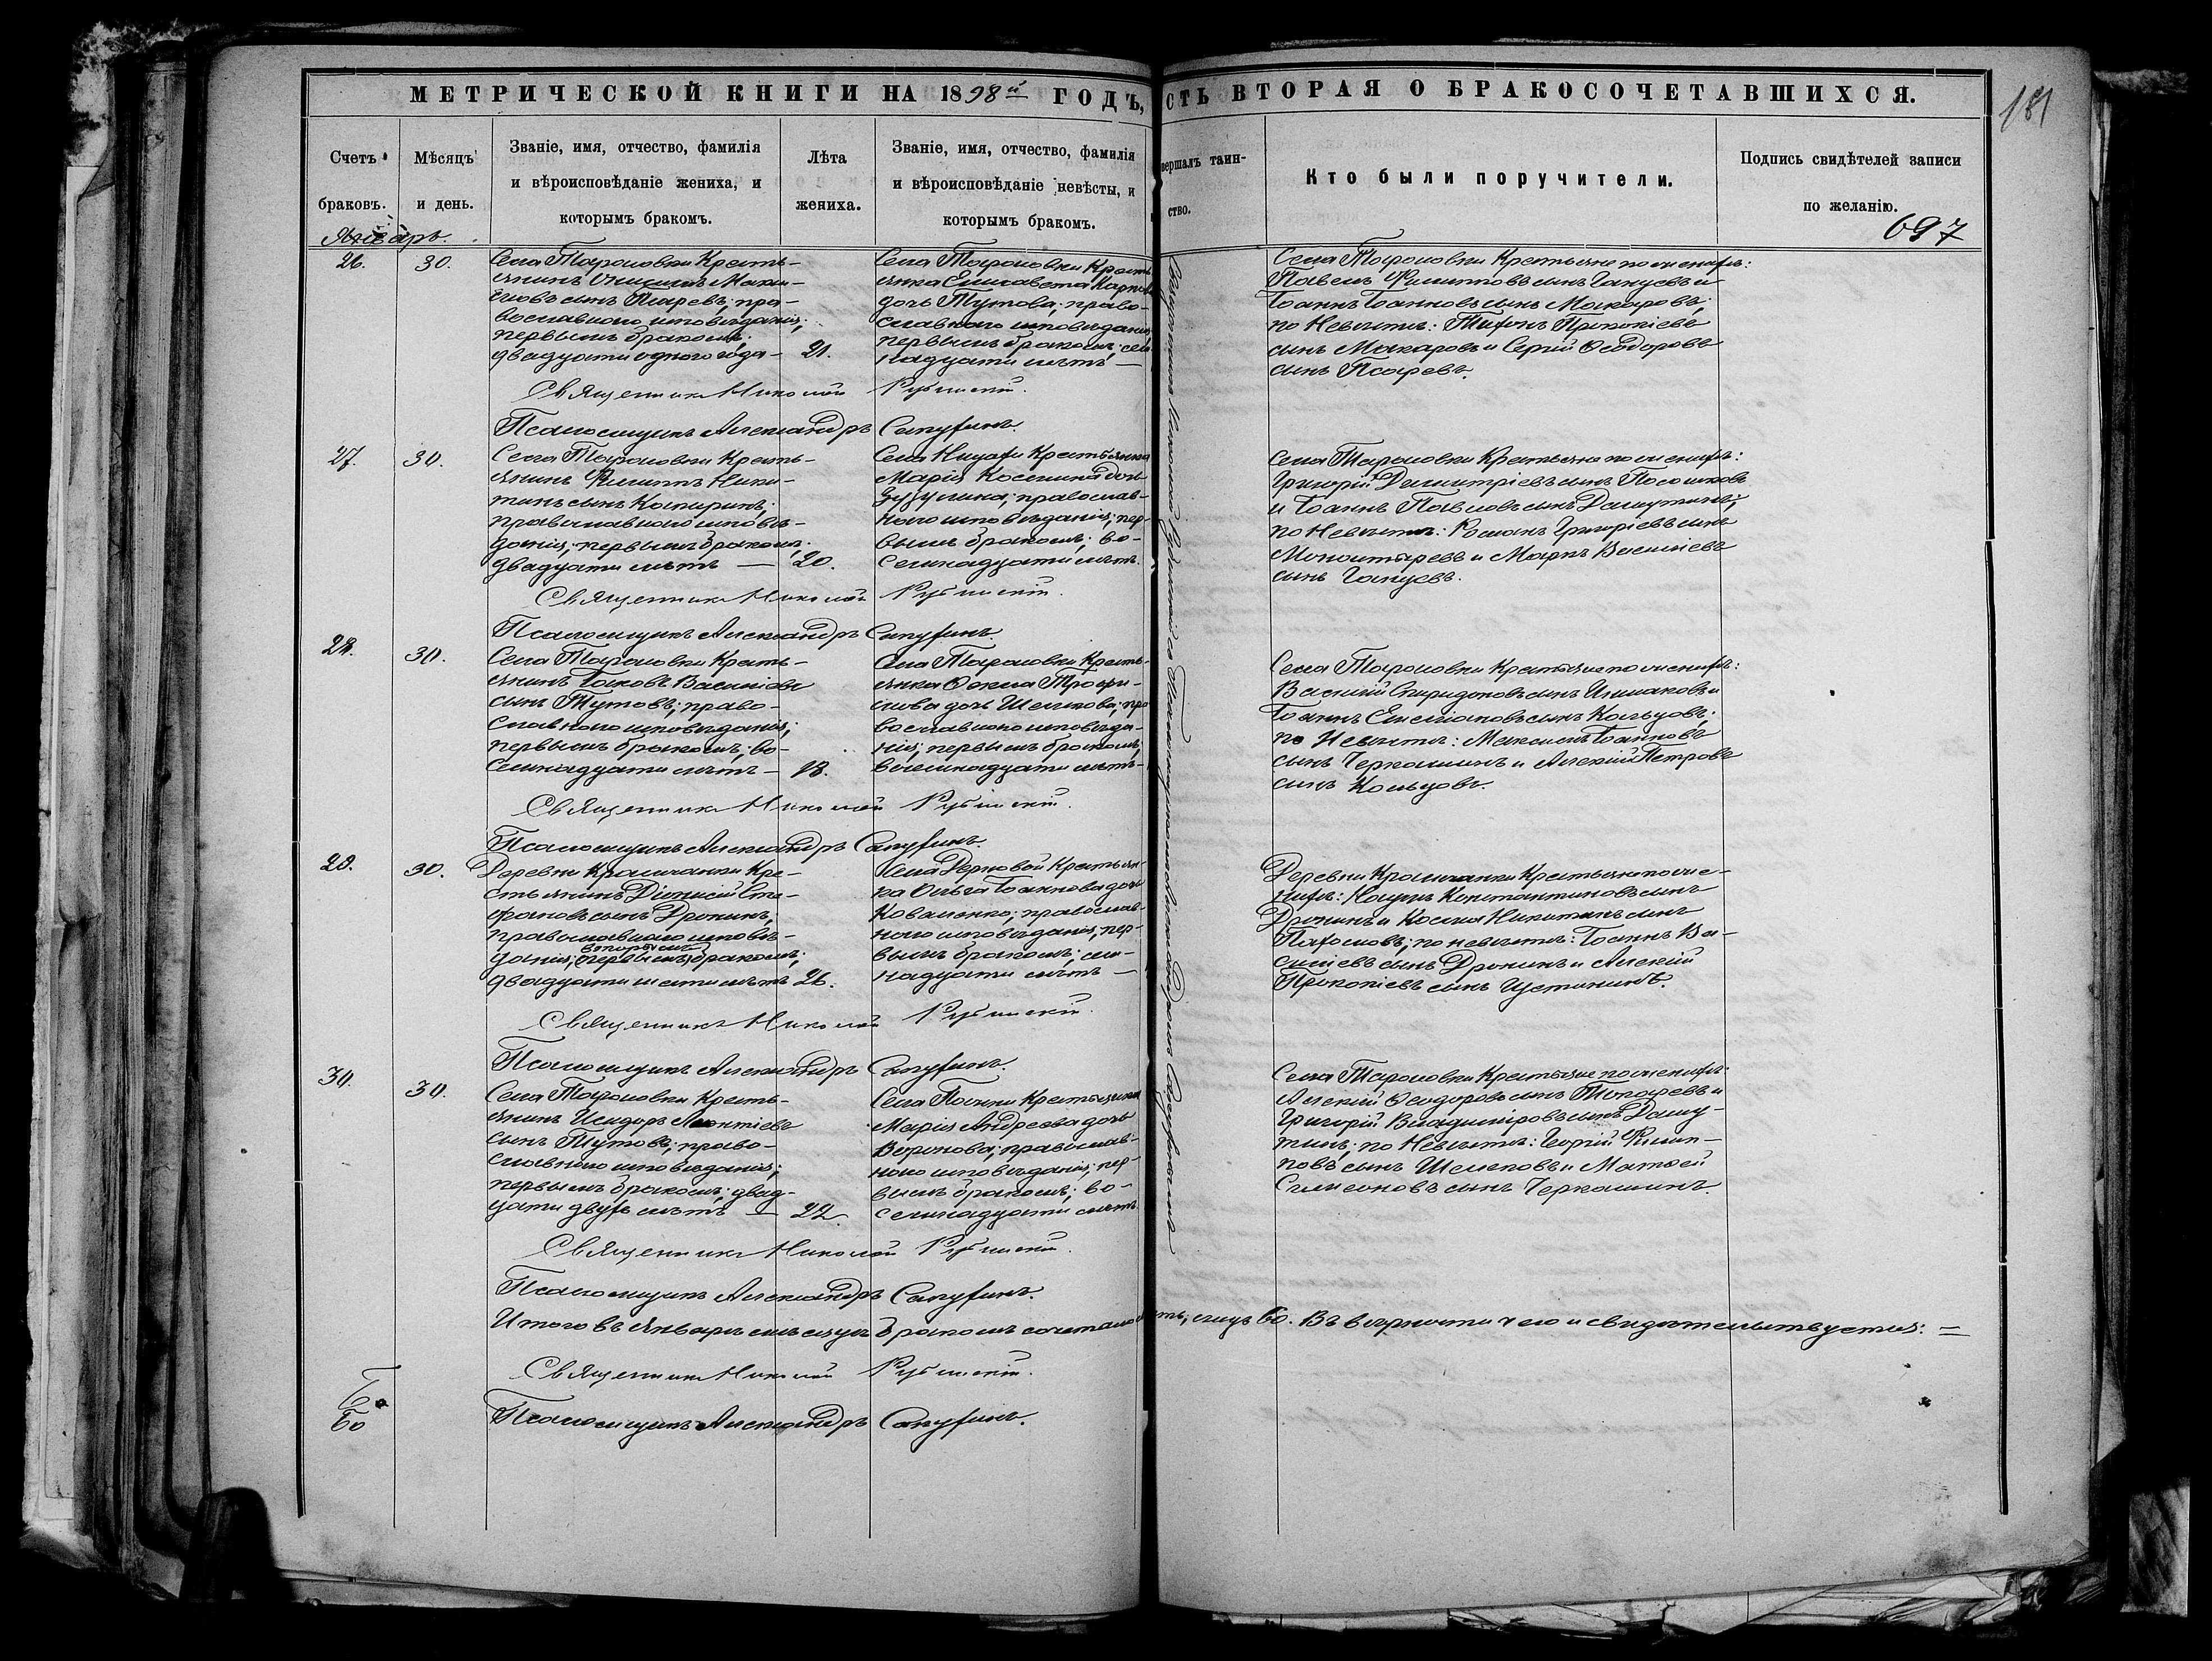 МЕТРИЧЕСКОЙ КНИГИ НА 1898й ГОДЪ,
СТЬ ВТОРАЯ О БРАКОСОЧЕТАВШИХСЯ.
181
Счетъ
браковъ.
Мѣсяцъ
и день.
Званіе, имя, отчество, фамилія
и вѣроисповѣданіе жениха, и
которымъ бракомъ.
Лѣта
жениха.
Званіе, имя, отчество, фамилія
и вѣроисповѣданіе невѣсты, и
которымъ бракомъ.
вершалъ таин-
ство.
Кто были поручители.
Подпись свидѣтелей записи
по желанію.
697
Январь.
26.
30.
Села Тарановки Кресть-
янинъ Онисимъ
сынъ православнаго исповѣданія;
первымъ бракомъ;
двадцати одного года —
21.
Села Тарановки Кресть
янка Елисавета Карпова
дочь Тутова; право-
славнаго исповѣданія,
первымъ бракомъ; сем
надцати лѣтъ —
Села Тарановки Крестьяне по женихѣ:
Павелъ Филипповъ сынъ Гапуевъ и
Іоаннъ Іоанновъ сынъ Макаровъ;
по Невѣстѣ: Тихонъ Прокопіевъ
сынъ Макаровъ и Сергій Ѳеодоровъ
сынъ Псаревъ.
Священникъ Николай Рубинскій.
Псаломщикъ Александръ
27.
30.
Села Тарановки Кресть-
янинъ Филиппъ Ники-
тинъ сынъ
православнаго исповѣ-
данія; первымъ бракомъ;
двадцати лѣтъ —
20.
Села Крестьянка
Марія Космина дочь
православ-
наго исповѣданія; пер-
вымъ бракомъ; во-
семнадцати лѣтъ.
Села Тарановки Крестьяне по женихѣ:
Григорій Димитріевъ сынъ
и Іоаннъ Павловъ сынъ Дашутинъ;
по Невѣстѣ: Романъ Григоріевъ сынъ
Монастыревъ и Маркъ Василіевъ
сынъ Гапуевъ.
Священникъ Николай Рубинскій.
Псаломщикъ Александръ
28.
30.
Села Тарановки Кресть-
янинъ Іаковъ Василіевъ
сынъ Тутовъ; право-
славнаго исповѣданія;
первымъ бракомъ; во-
семнадцати лѣтъ —
18.
Села Тарановки Кресть-
янка Ѳекла Трофи-
мова дочь Шелкова; пра
вославнаго исповѣда-
нія; первымъ бракомъ,
восемнадцати лѣтъ —
Села Тарановки Крестьяне по женихѣ:
Василій Спиридоновъ сынъ и
Іоаннъ Емеліановъ сынъ Кальцовъ;
по Невѣстѣ: Максимъ Іоанновъ
сынъ Черкашинъ и Алексій Петровъ
сынъ Кольцовъ.
Священникъ Николай Рубинскій.
Псаломщикъ Александръ
29.
30.
Деревни Крамчанки Кре-
стьянинъ Діонисій Сте-
фановъ сынъ Дронинъ,
православнаго исповѣ-
данія; вторымъ (первымъ) бракомъ;
двадцати шести лѣтъ
26.
Села Берновой Крестьян-
ка Ольга Іоаннова дочь
Коваленко; православ-
наго исповѣданія; пер-
вымъ бракомъ; сем-
надцати лѣтъ —
Деревни Крамчанки Крестьяне по же-
нихѣ: Константиновъ сынъ
Дронинъ и Косма Никитинъ сынъ
Пахомовъ; по невѣстѣ: Іоаннъ Ва-
силіевъ сынъ Дронинъ и Алексій
Прокопіевъ сынъ Устининъ.
Священникъ Николай Рубинскій.
Псаломщикъ Александръ
30.
30.
Села Тарановки Кресть-
янинъ Исидоръ Леонтіевъ
сынъ Тутовъ; право-
славнаго исповѣданія;
первымъ бракомъ; двад-
цати двухъ лѣтъ —
22.
Села Крестьянка
Марія Андреева дочь
Воронова; православ-
наго исповѣданія; пер-
вымъ бракомъ; во-
семнадцати лѣтъ.
Села Тарановки Крестьяне по женихѣ:
Алексій Ѳеодоровъ сынъ Токаревъ и
Григорій Владиміровъ сынъ Дашу-
тинъ; по Невѣстѣ: Георгій Филип-
повъ сынъ Шелковъ и Матѳей
Симеоновъ сынъ Черкашинъ.
Священникъ Николай Рубинскій.
Псаломщикъ Александръ
Итого въ Январѣ мѣсяцѣ бракомъ сочетало лицъ 60. Въ вѣрности чего и свидѣтельствуемъ: =
Священникъ Николай Рубинскій.
60
Псаломщикъ Александръ